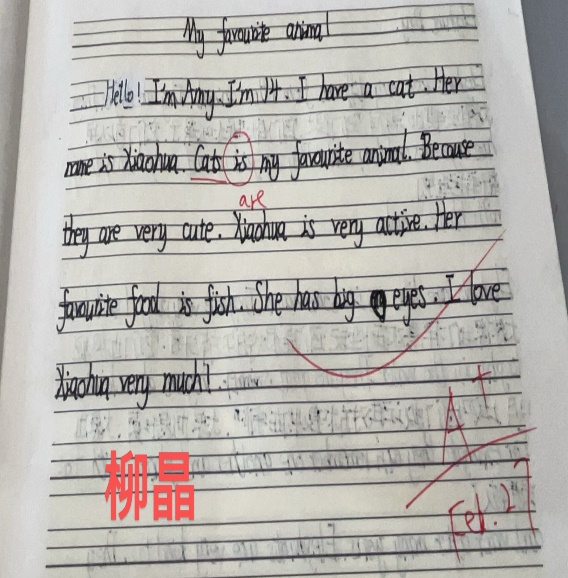 My favourite animal
Hello! I'm Amy. I'm 14. I have a cat. Her
name is Xiaohua. Cats is my favourite animal. Because
are
they are very cute. Xiaohua is very active. Her
favourite food is fish. She has big eyes. I love
Xiaohua very much!
A+
Feb. 27
柳晶